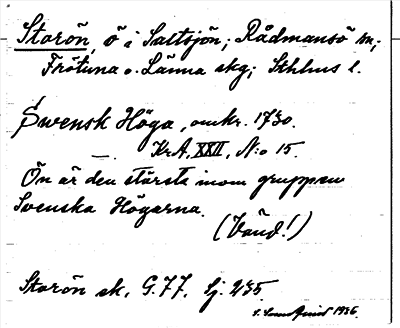 Storön, ö i Saltsjön; Rådmansö sn;
Frötuna o. Länna skg; Sthlms l.
Svensk Höga, omkr. 1730.
KrA, XXII, N:o 15.
Ön är den största inom gruppen
Svenska Högarna.
(Vänd!)
Storön sk. G.77. Sj. 235.
1936.